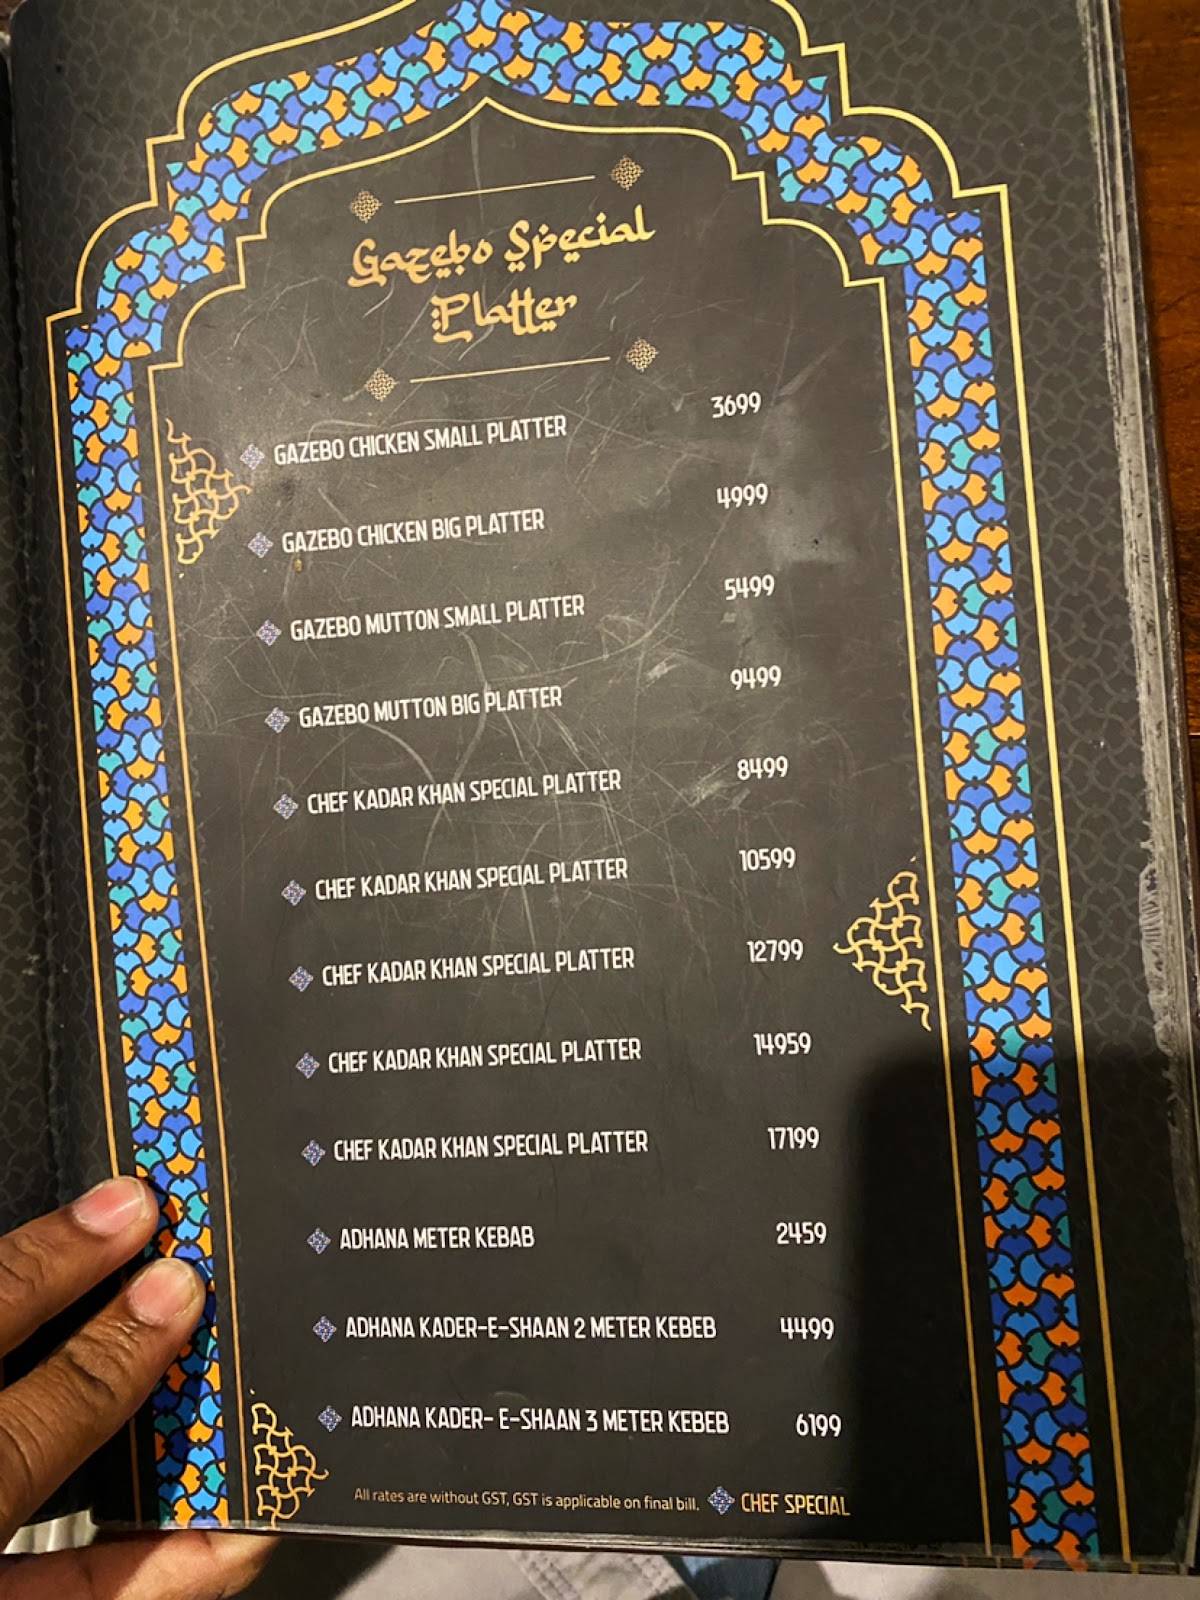 Gazebo Special
Platter
GAZEBO CHICKEN SMALL PLATTER 3699
GAZEBO CHICKEN BIG PLATTER 4999
GAZEBO MUTTON SMALL PLATTER 5499
GAZEBO MUTTON BIG PLATTER 9499
CHEF KADAR KHAN SPECIAL PLATTER 8499
CHEF KADAR KHAN SPECIAL PLATTER 10599
CHEF KADAR KHAN SPECIAL PLATTER 12799
CHEF KADAR KHAN SPECIAL PLATTER 14959
CHEF KADAR KHAN SPECIAL PLATTER 17199
ADHANA METER KEBAB 2459
ADHANA KADER-E-SHAAN 2 METER KEBEB 4499
ADHANA KADER- E-SHAAN 3 METER KEBEB 6199
All rates are without GST, GST is applicable on final bill. CHEF SPECIAL